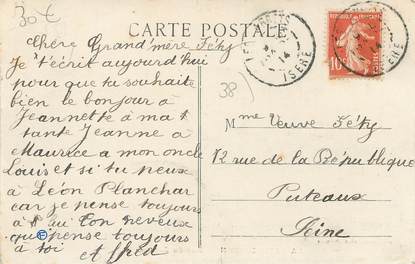 30€
CARTE POSTALE
chère Grand'mère Féty
Je t'écrit aujourd'hui
pour que tu souhaite
bien le bonjour à
Jeannette à ma t
tante Jeanne à
Maurice a mon oncle
Louis et si tu peux
à Léon Planchar
car je pense toujours
à lui Ton neveux
qui pense toujours
à toi
38)
ISERE
14
REPUBLIQUE FRANÇAISE
10
Mme Veuve Féty
12 rue de la République
Puteaux
Seine